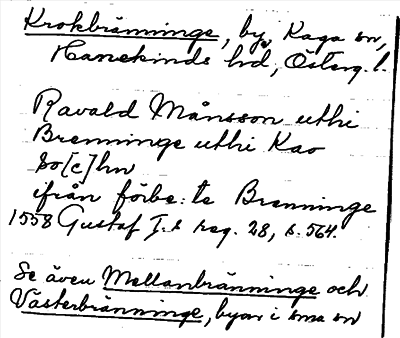 Krokbränninge, by, Kaga sn,
Hanekinds hd, Österg. l.
Ravald Månsson uthi
Brenninge uthi Kao
so[c]hn
ifrån förbe:te Brenninge
1558 Gustaf I:s reg. 28, s. 564.
Se även Mellanbränninge och
Västerbränninge, byar i sma sn